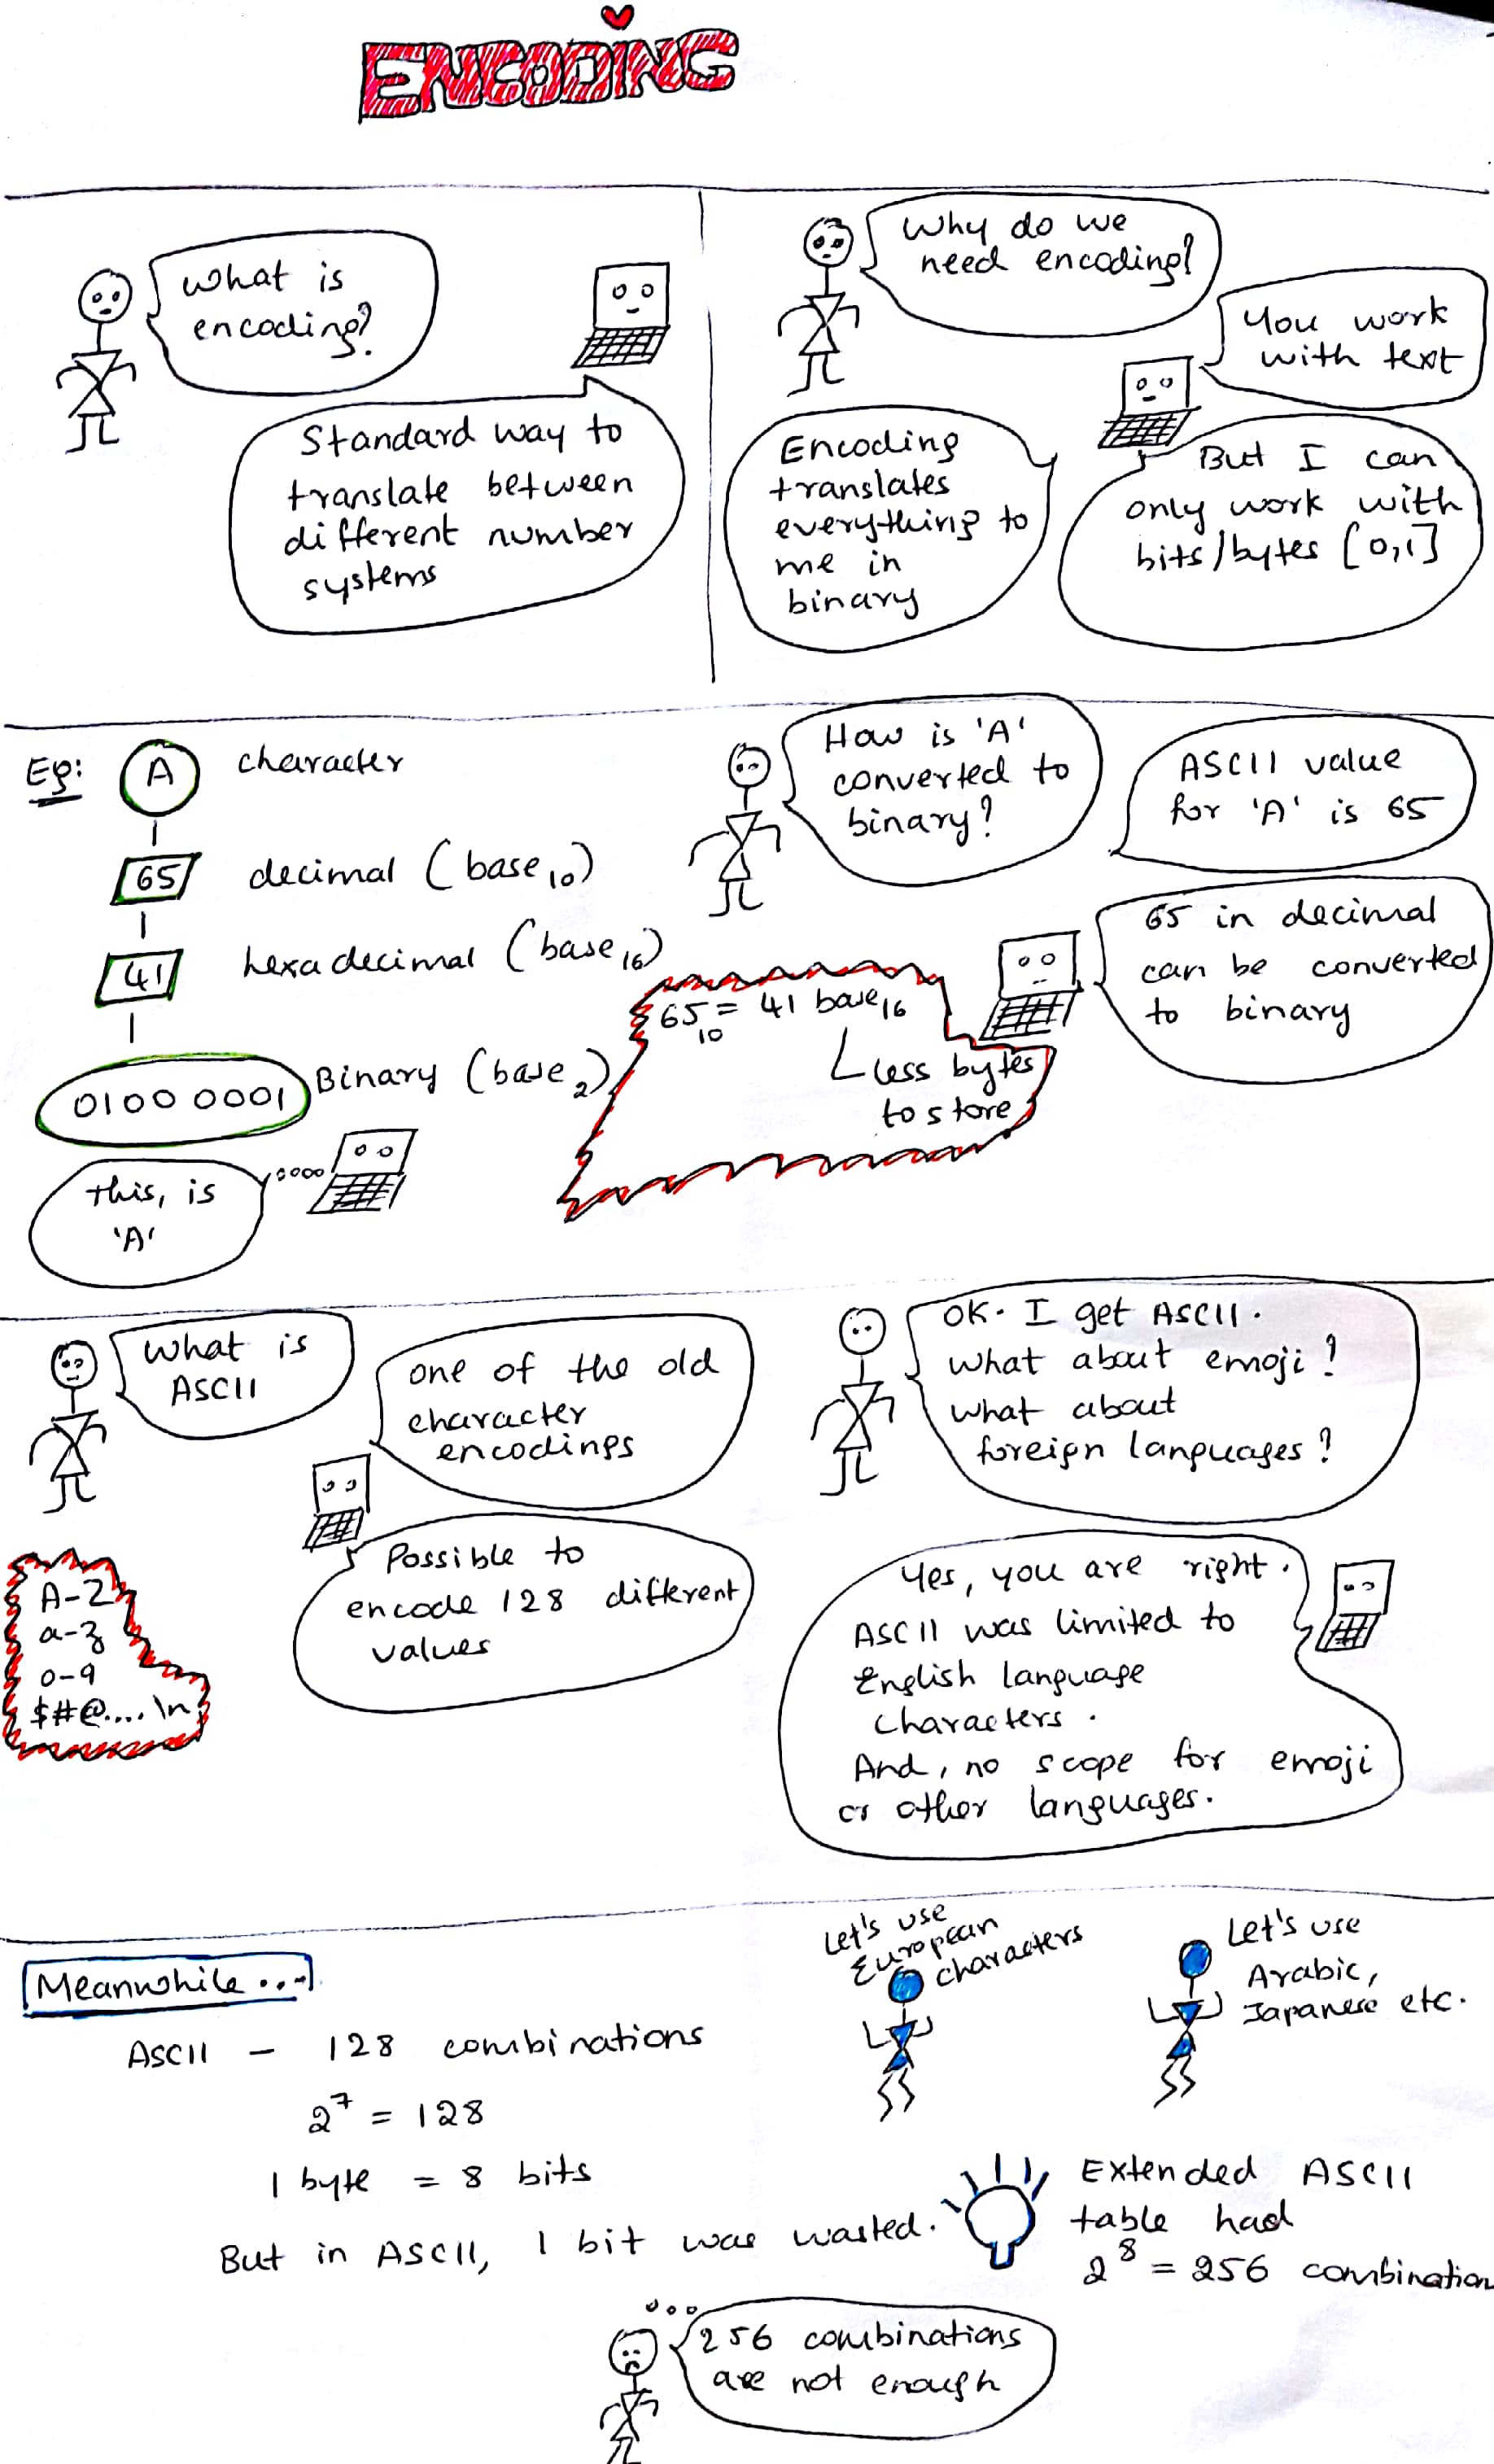 ENCODING
What is
encoding?
Standard way to
translate between
different number
systems
Why do we
need encoding?
You work
with text
But I can
only work with
bits/bytes [0,1]
Encoding
translates
everything to
me in
binary
Eg:
A character
65 decimal (base 10)
41 hexadecimal (base 16)
0100 0001 Binary (base 2)
This, is
'A'
How is 'A'
converted to
binary?
ASCII value
for 'A' is 65
65 in decimal
can be converted
to binary
65 10 = 41 base 16
less bytes
to store
What is
ASCII
one of the old
character
encodings
Possible to
encode 128 different
values
A-Z
a-z
0-9
$#@....\n
OK. I get ASCII.
What about emoji?
What about
foreign languages?
Yes, you are right.
ASCII was limited to
English language
characters.
And, no scope for emoji
or other languages.
Meanwhile...
ASCII - 128 combinations
2^7 = 128
1 byte = 8 bits
But in ASCII, 1 bit was wasted.
Let's use
European
characters
Let's use
Arabic,
Japanese etc.
Extended ASCII
table had
2^8 = 256 combination
256 combinations
are not enough